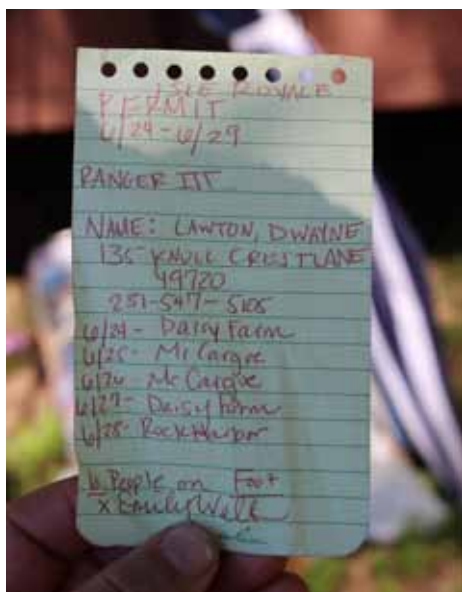 ISLE ROYALE
PERMIT
6/24-6/29
RANGER III
NAME: LAWTON, DWAYNE
135 KNOLL CREST LANE
49720
231-547-5105
6/24- Daisy Farm
6/25- Mc Cargoe
6/26- Mc Cargoe
6/27- Daisy Farm
6/28- Rock Harbor
6 People on Foot
x Emily Welt